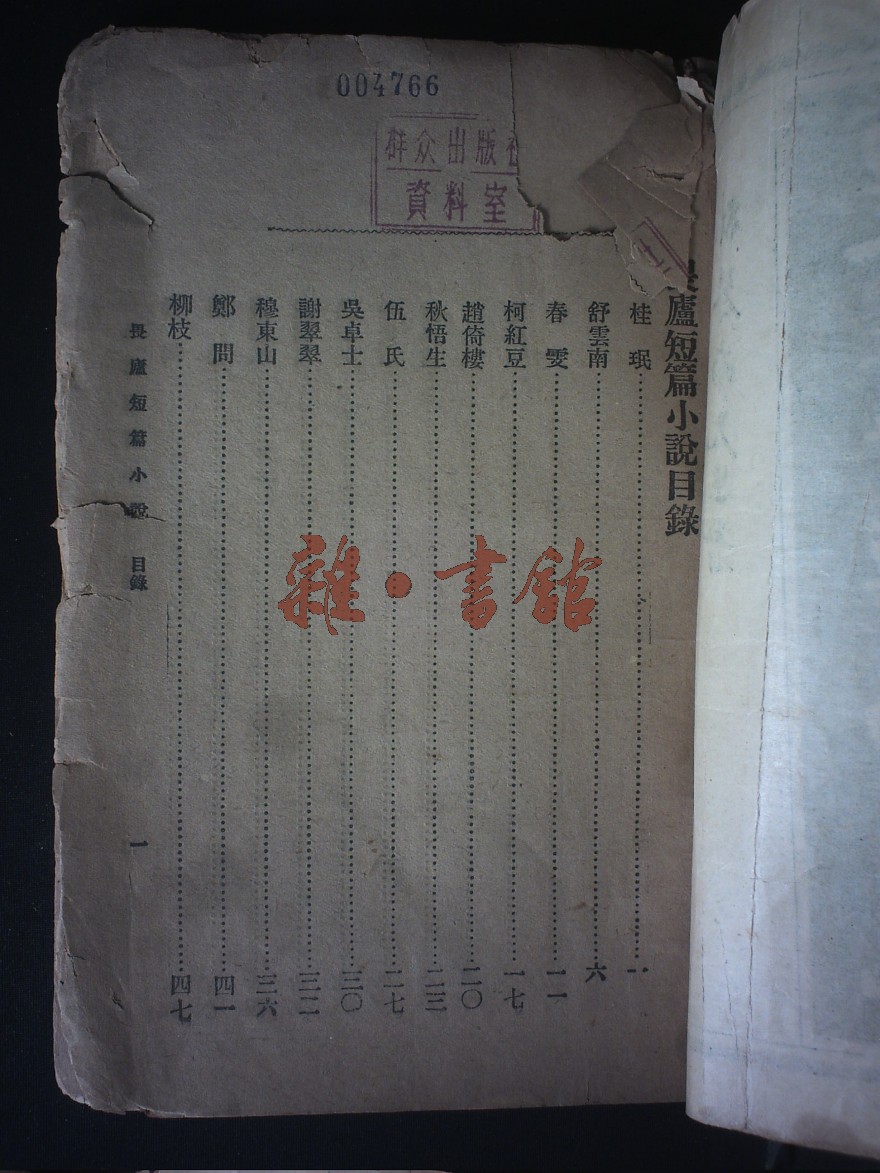 004766
群众出版社
資料室
畏廬短篇小說目錄
桂珉……一
舒雲南……六
春雯……一一
柯紅豆……一七
趙倚樓……二〇
秋悟生……二三
伍氏……二七
吳卓士……三〇
謝翠翠……三二
穆東山……三六
鄭問……四一
柳枝……四七
畏廬短篇小說 目錄
一
雜·書館